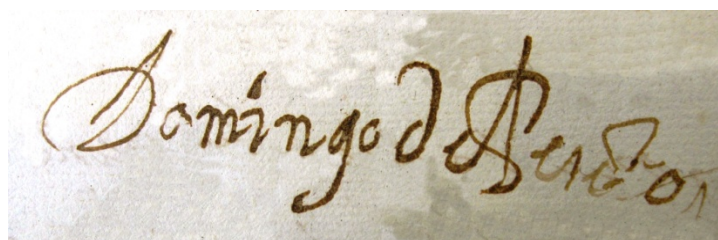 Domingo de